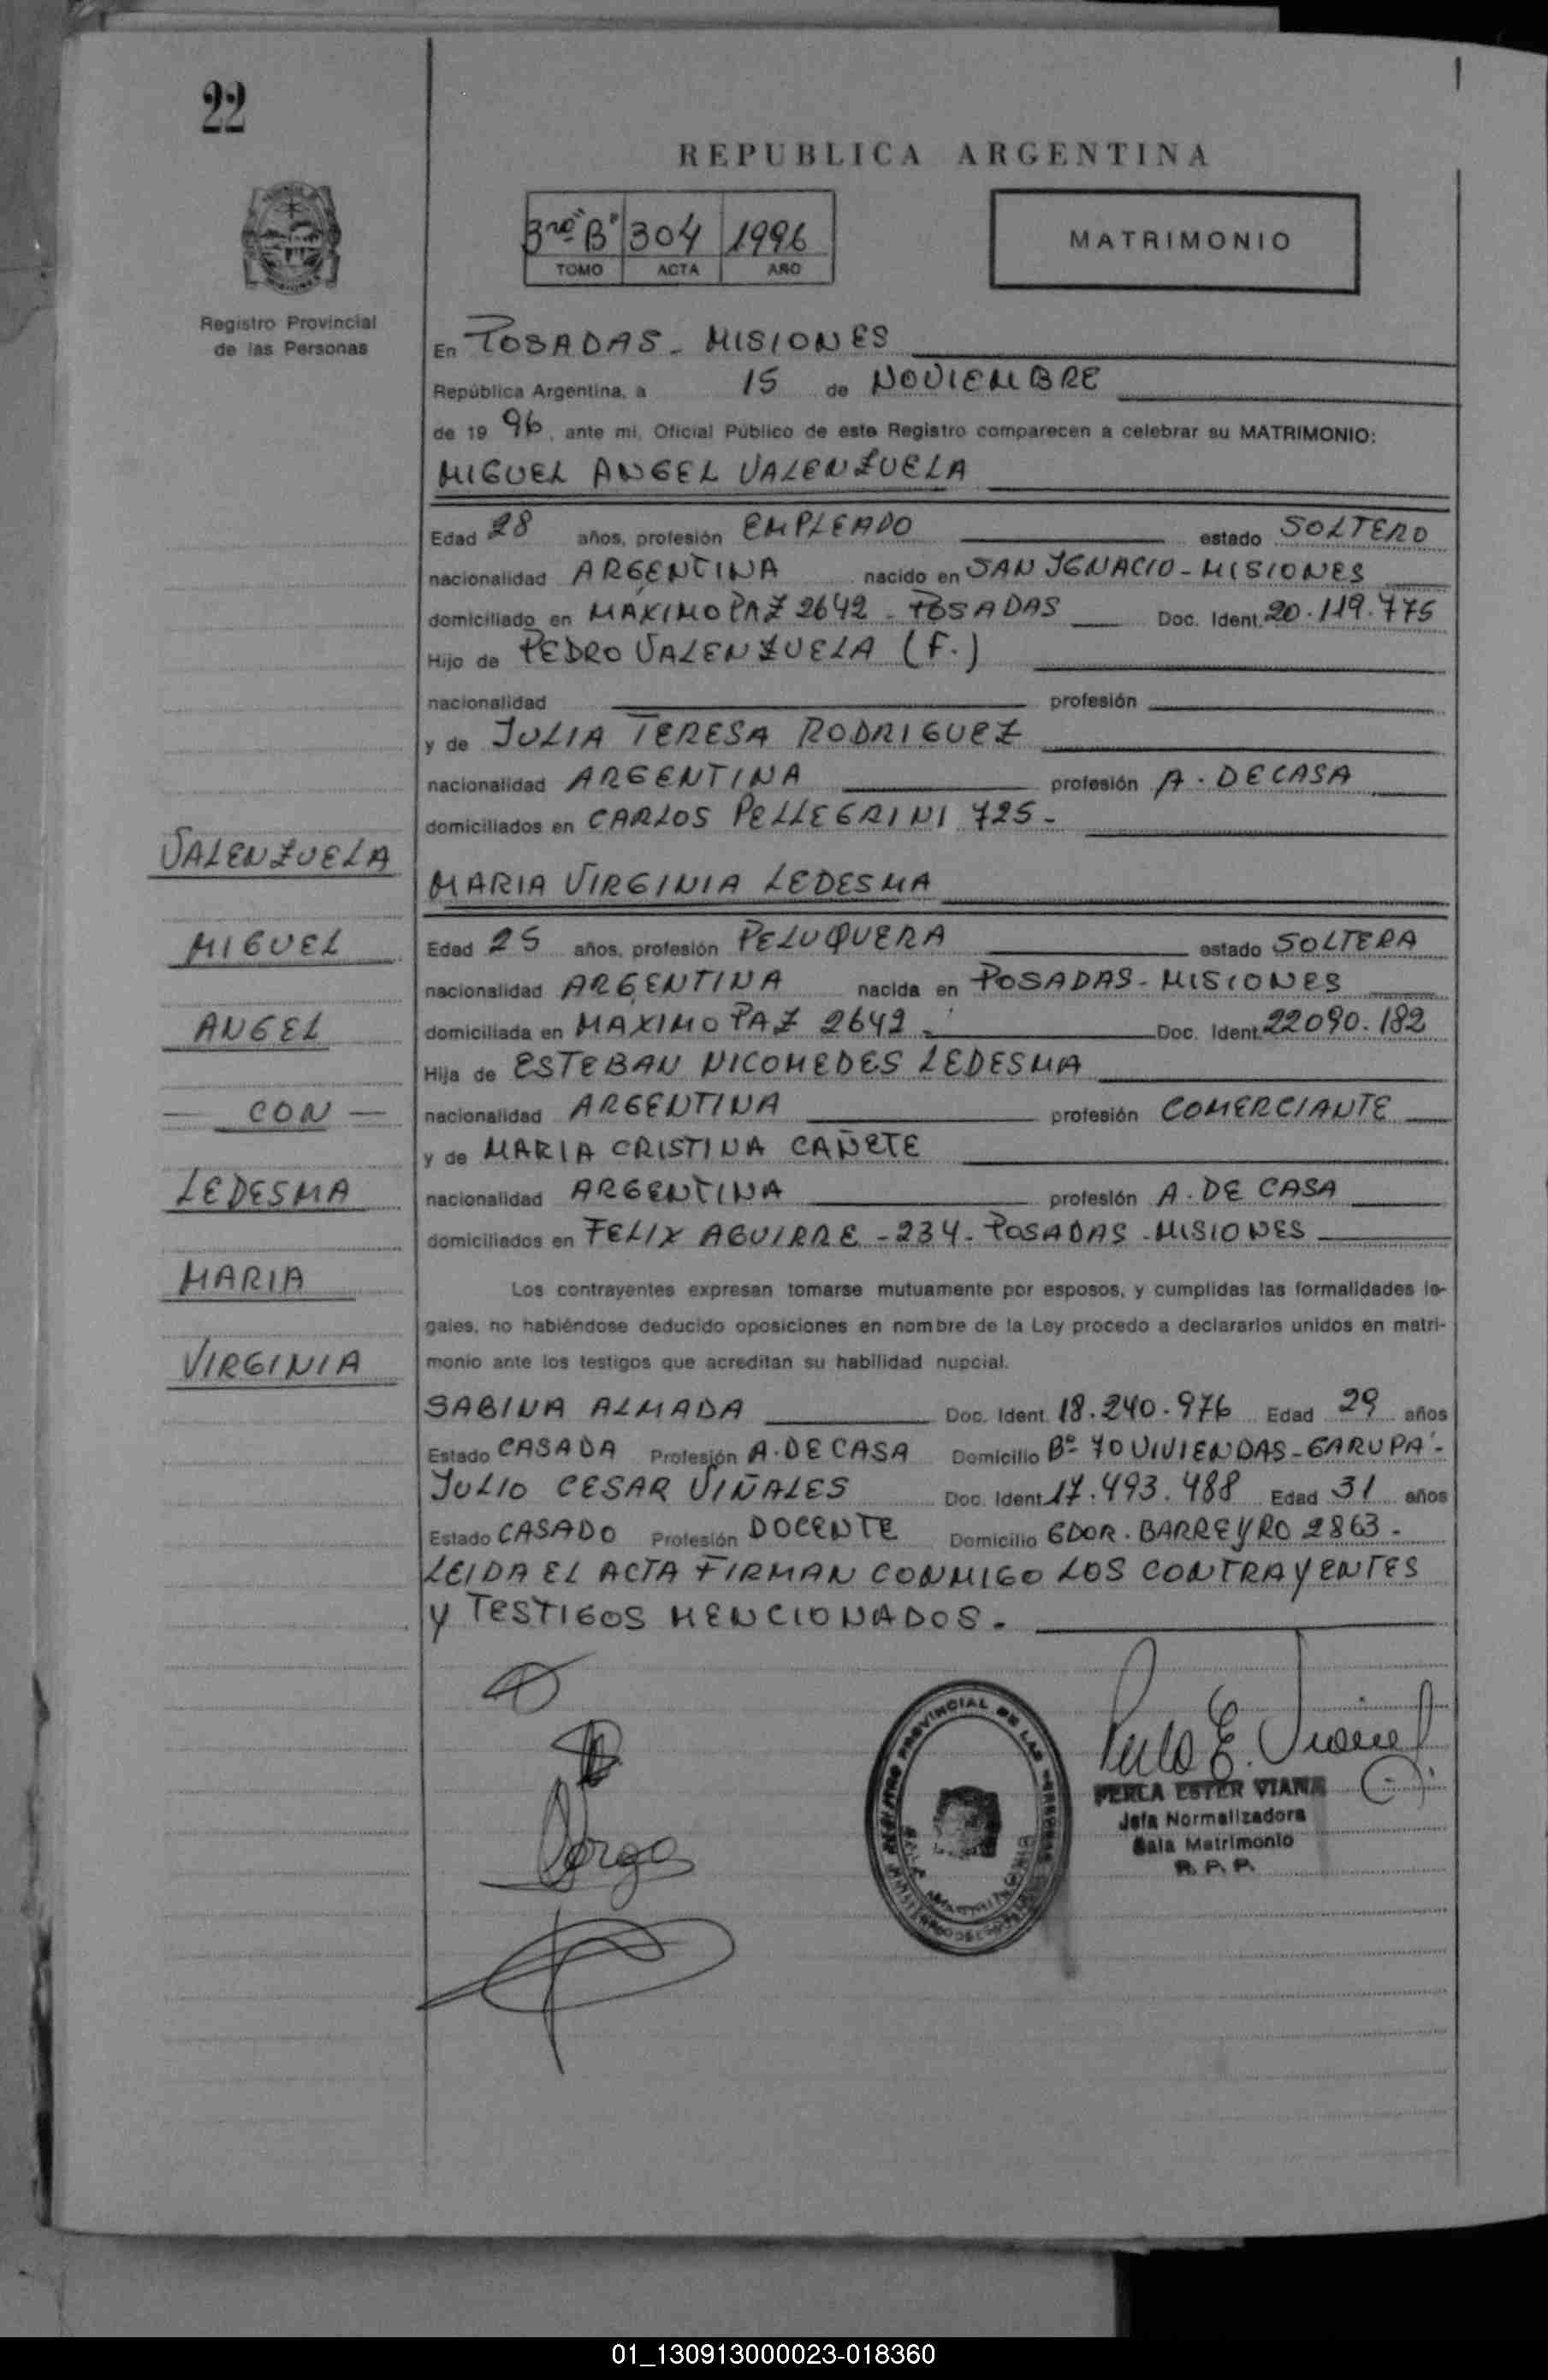 22
REPUBLICA ARGENTINA
3ro "B" 304 1996
TOMO ACTA AÑO
MATRIMONIO
Registro Provincial
de las Personas
En POSADAS - MISIONES
República Argentina, a 15 de NOVIEMBRE
de 19 96, ante mi, Oficial Público de este Registro comparecen a celebrar su MATRIMONIO:
MIGUEL ANGEL VALENZUELA
Edad 28 años, profesión EMPLEADO estado SOLTERO
nacionalidad ARGENTINA nacido en SAN IGNACIO - MISIONES
domiciliado en MÁXIMO PAZ 2642 - POSADAS Doc. Ident. 20.119.775
Hijo de PEDRO VALENZUELA (F.)
nacionalidad profesión
y de JULIA TERESA RODRIGUEZ
nacionalidad ARGENTINA profesión A. DE CASA
domiciliados en CARLOS PELLEGRINI 725 -
VALENZUELA
MIGUEL
ANGEL
— CON —
LEDESMA
MARIA
VIRGINIA
MARIA VIRGINIA LEDESMA
Edad 25 años, profesión PELUQUERA estado SOLTERA
nacionalidad ARGENTINA nacida en POSADAS - MISIONES
domiciliada en MAXIMO PAZ 2642 - Doc. Ident. 22090.182
Hija de ESTEBAN NICOMEDES LEDESMA
nacionalidad ARGENTINA profesión COMERCIANTE
y de MARIA CRISTINA CAÑETE
nacionalidad ARGENTINA profesión A. DE CASA
domiciliados en FELIX AGUIRRE - 234 - POSADAS - MISIONES
Los contrayentes expresan tomarse mutuamente por esposos, y cumplidas las formalidades le-
gales, no habiéndose deducido oposiciones en nombre de la Ley procedo a declararlos unidos en matri-
monio ante los testigos que acreditan su habilidad nupcial.
SABINA ALMADA Doc. Ident. 18.240.976 Edad 29 años
Estado CASADA Profesión A. DE CASA Domicilio Bº 70 VIVIENDAS - GARUPA -
JULIO CESAR VIÑALES Doc. Ident. 17.493.488 Edad 31 años
Estado CASADO Profesión DOCENTE Domicilio GDOR. BARREYRO 2863 -
LEIDA EL ACTA FIRMAN CONMIGO LOS CONTRAYENTES
Y TESTIGOS MENCIONADOS -
PERLA ESTER VIANA
Jefa Normalizadora
Sala Matrimonio
R. P. P.
REGISTRO PROVINCIAL DE LAS PERSONAS
SALA MATRIMONIO
01_130913000023-018360